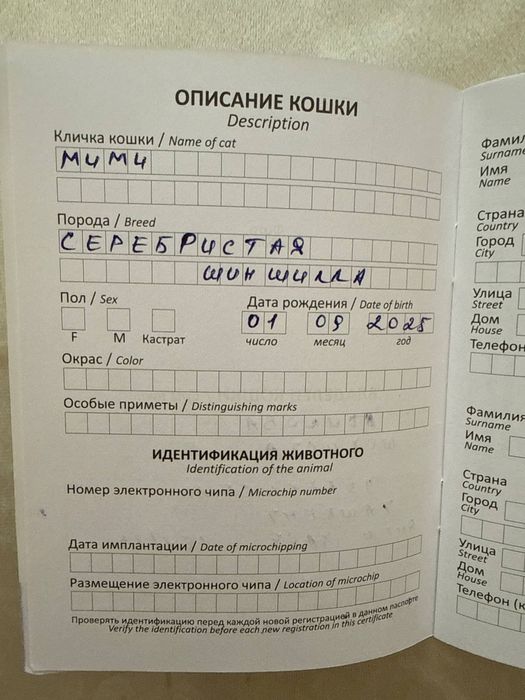 ОПИСАНИЕ КОШКИ
Description
Кличка кошки / Name of cat
МИМИ
Порода / Breed
СЕРЕБРИСТАЯ
ШИНШИЛЛА
Пол / Sex
Дата рождения / Date of birth
01 09 2025
F M Кастрат
число месяц год
Окрас / Color
Особые приметы / Distinguishing marks
ИДЕНТИФИКАЦИЯ ЖИВОТНОГО
Identification of the animal
Номер электронного чипа / Microchip number
Дата имплантации / Date of microchipping
Размещение электронного чипа / Location of microchip
Проверять идентификацию перед каждой новой регистрацией в данном паспорте
Verify the identification before each new registration in this certificate
Surname
Имя
Name
Страна
Country
Город
City
Улица
Street
Дом
House
Телефон
Фамилия
Surname
Имя
Name
Страна
Country
Город
City
Улица
Street
Дом
House
Телефон (